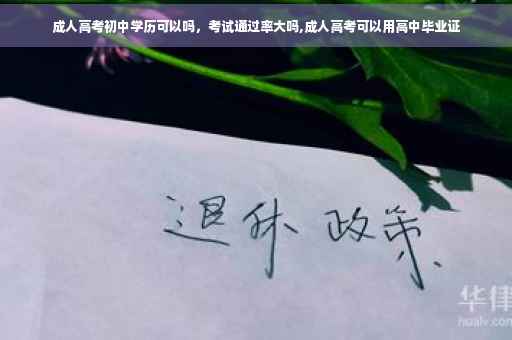 成人高考初中学历可以吗，考试通过率大吗,成人高考可以用高中毕业证
退休政策
华律
hualv.com